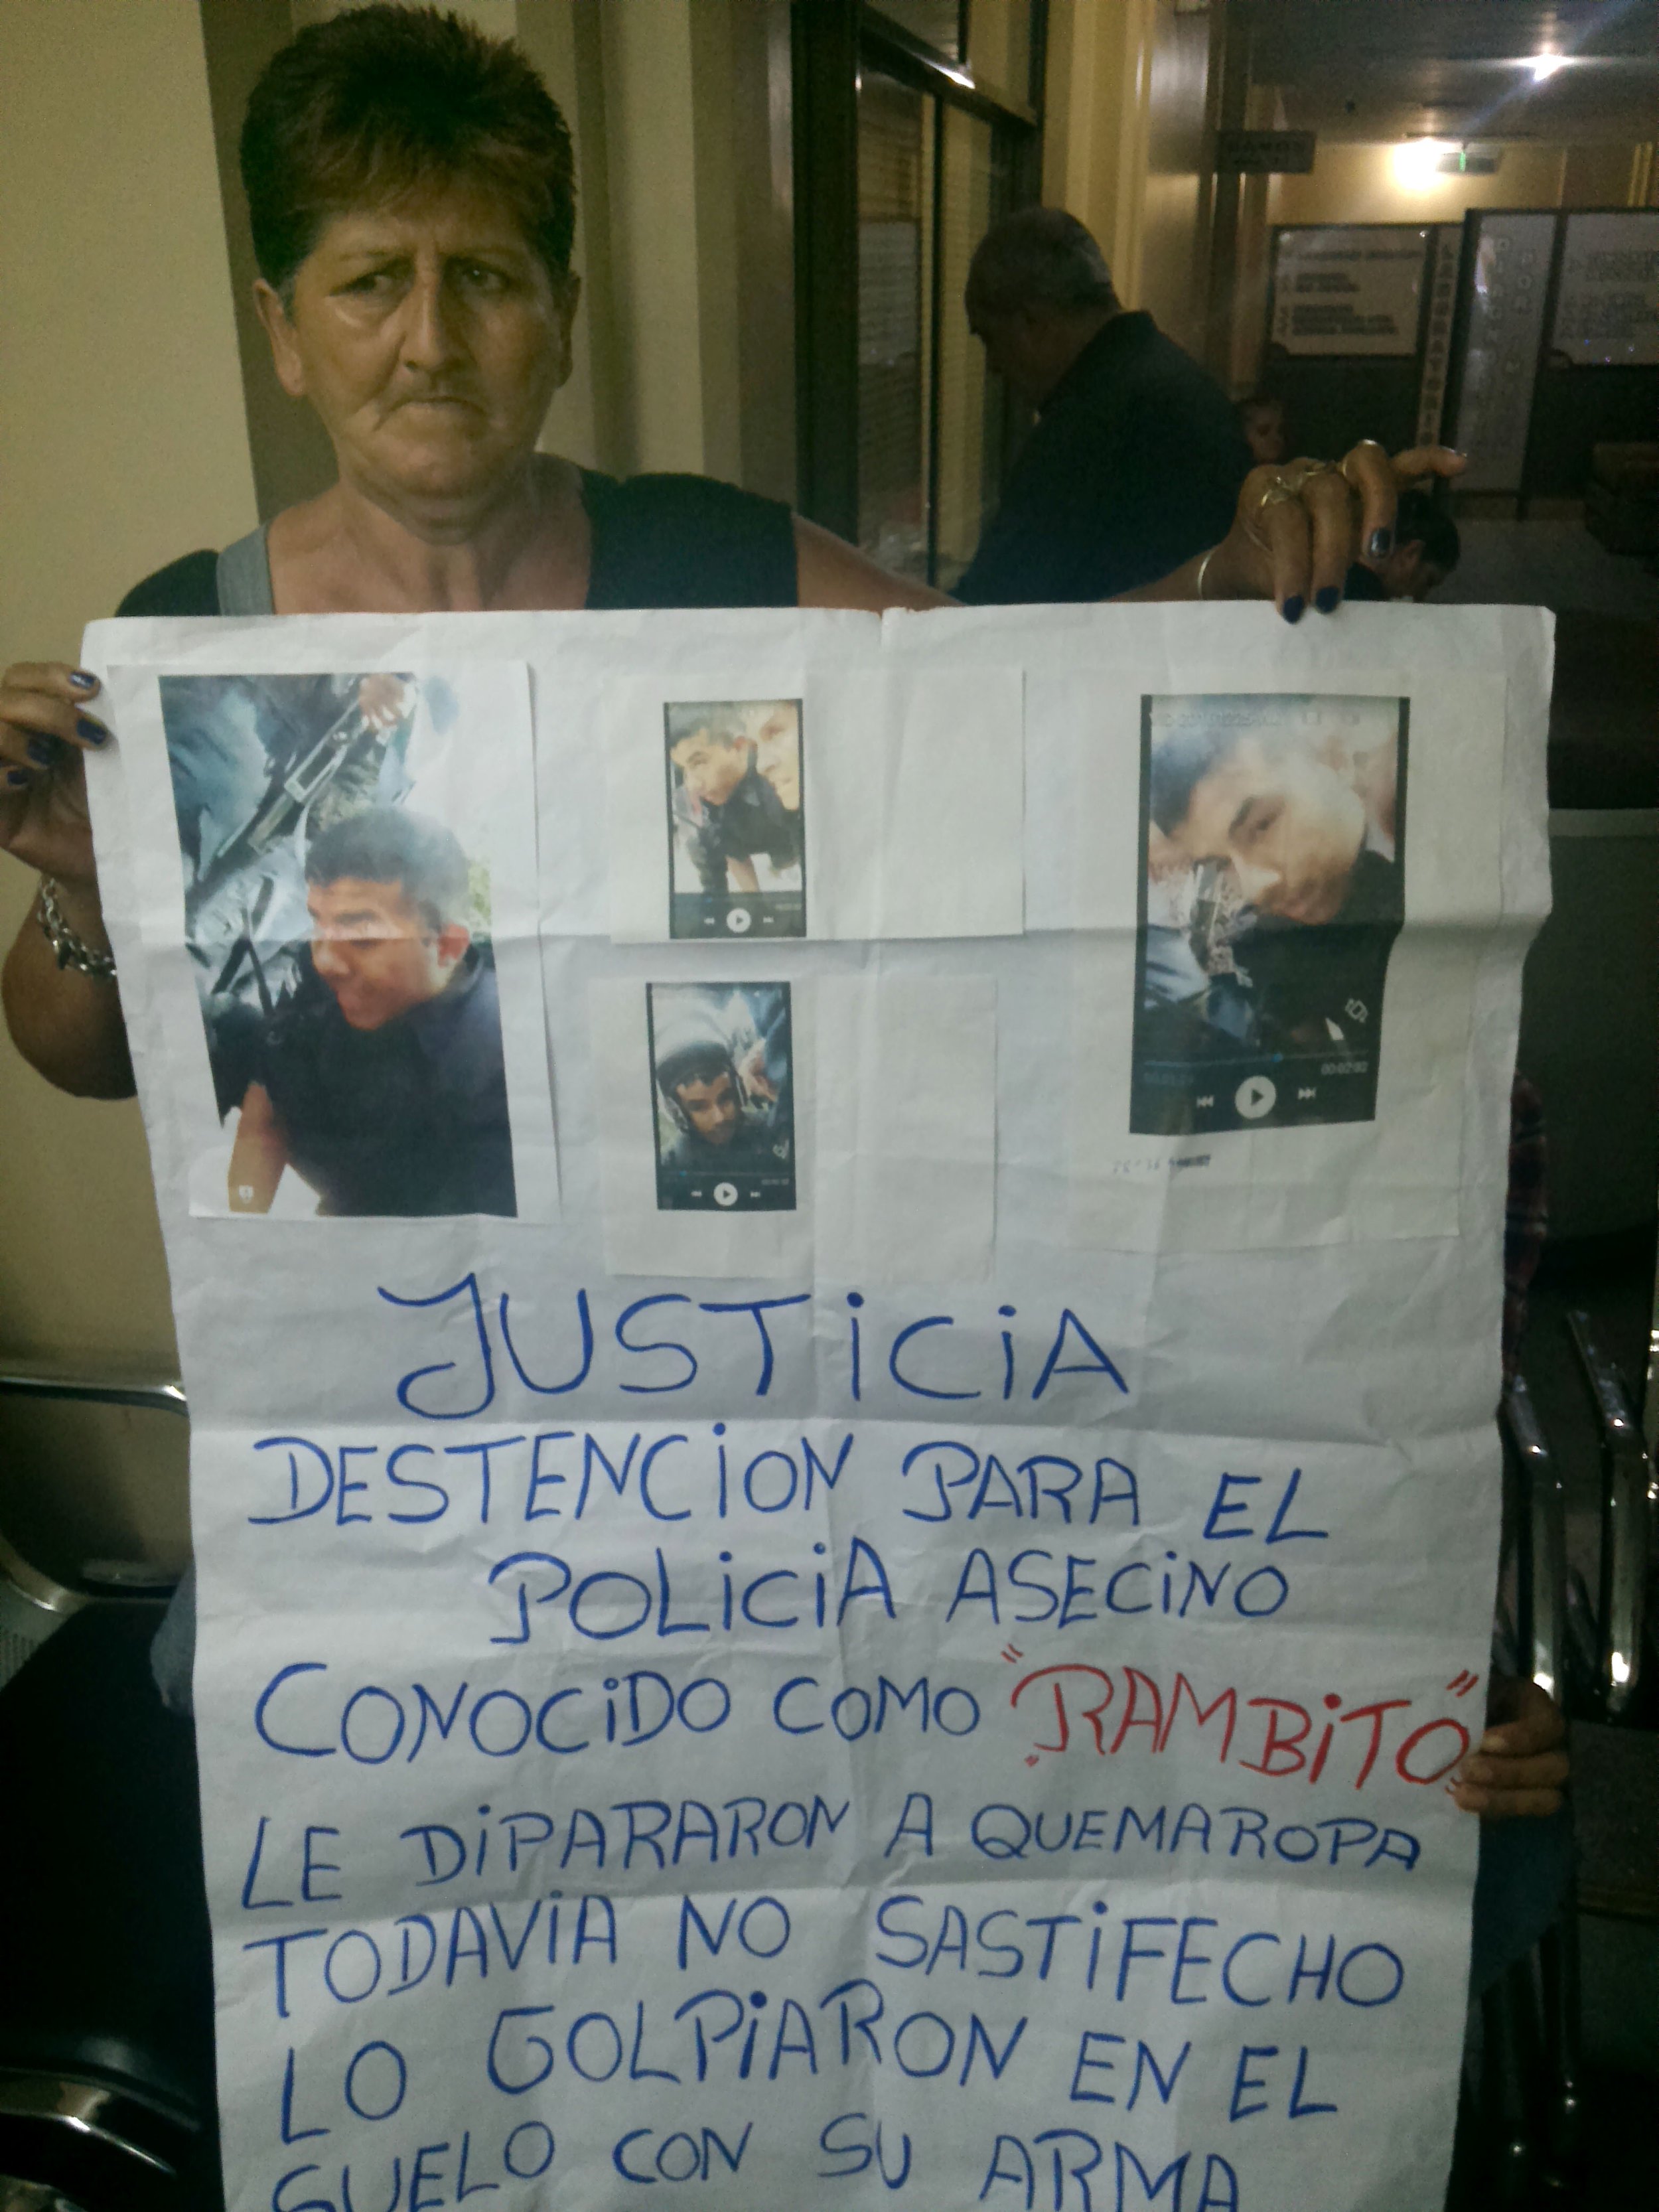 JUSTICIA
DESTENCION PARA EL
POLICIA ASECINO
CONOCIDO COMO "RAMBITO"
LE DIPARARON A QUEMAROPA
TODAVIA NO SASTIFECHO
LO GOLPIARON EN EL
SUELO CON SU ARMA
00:02:02